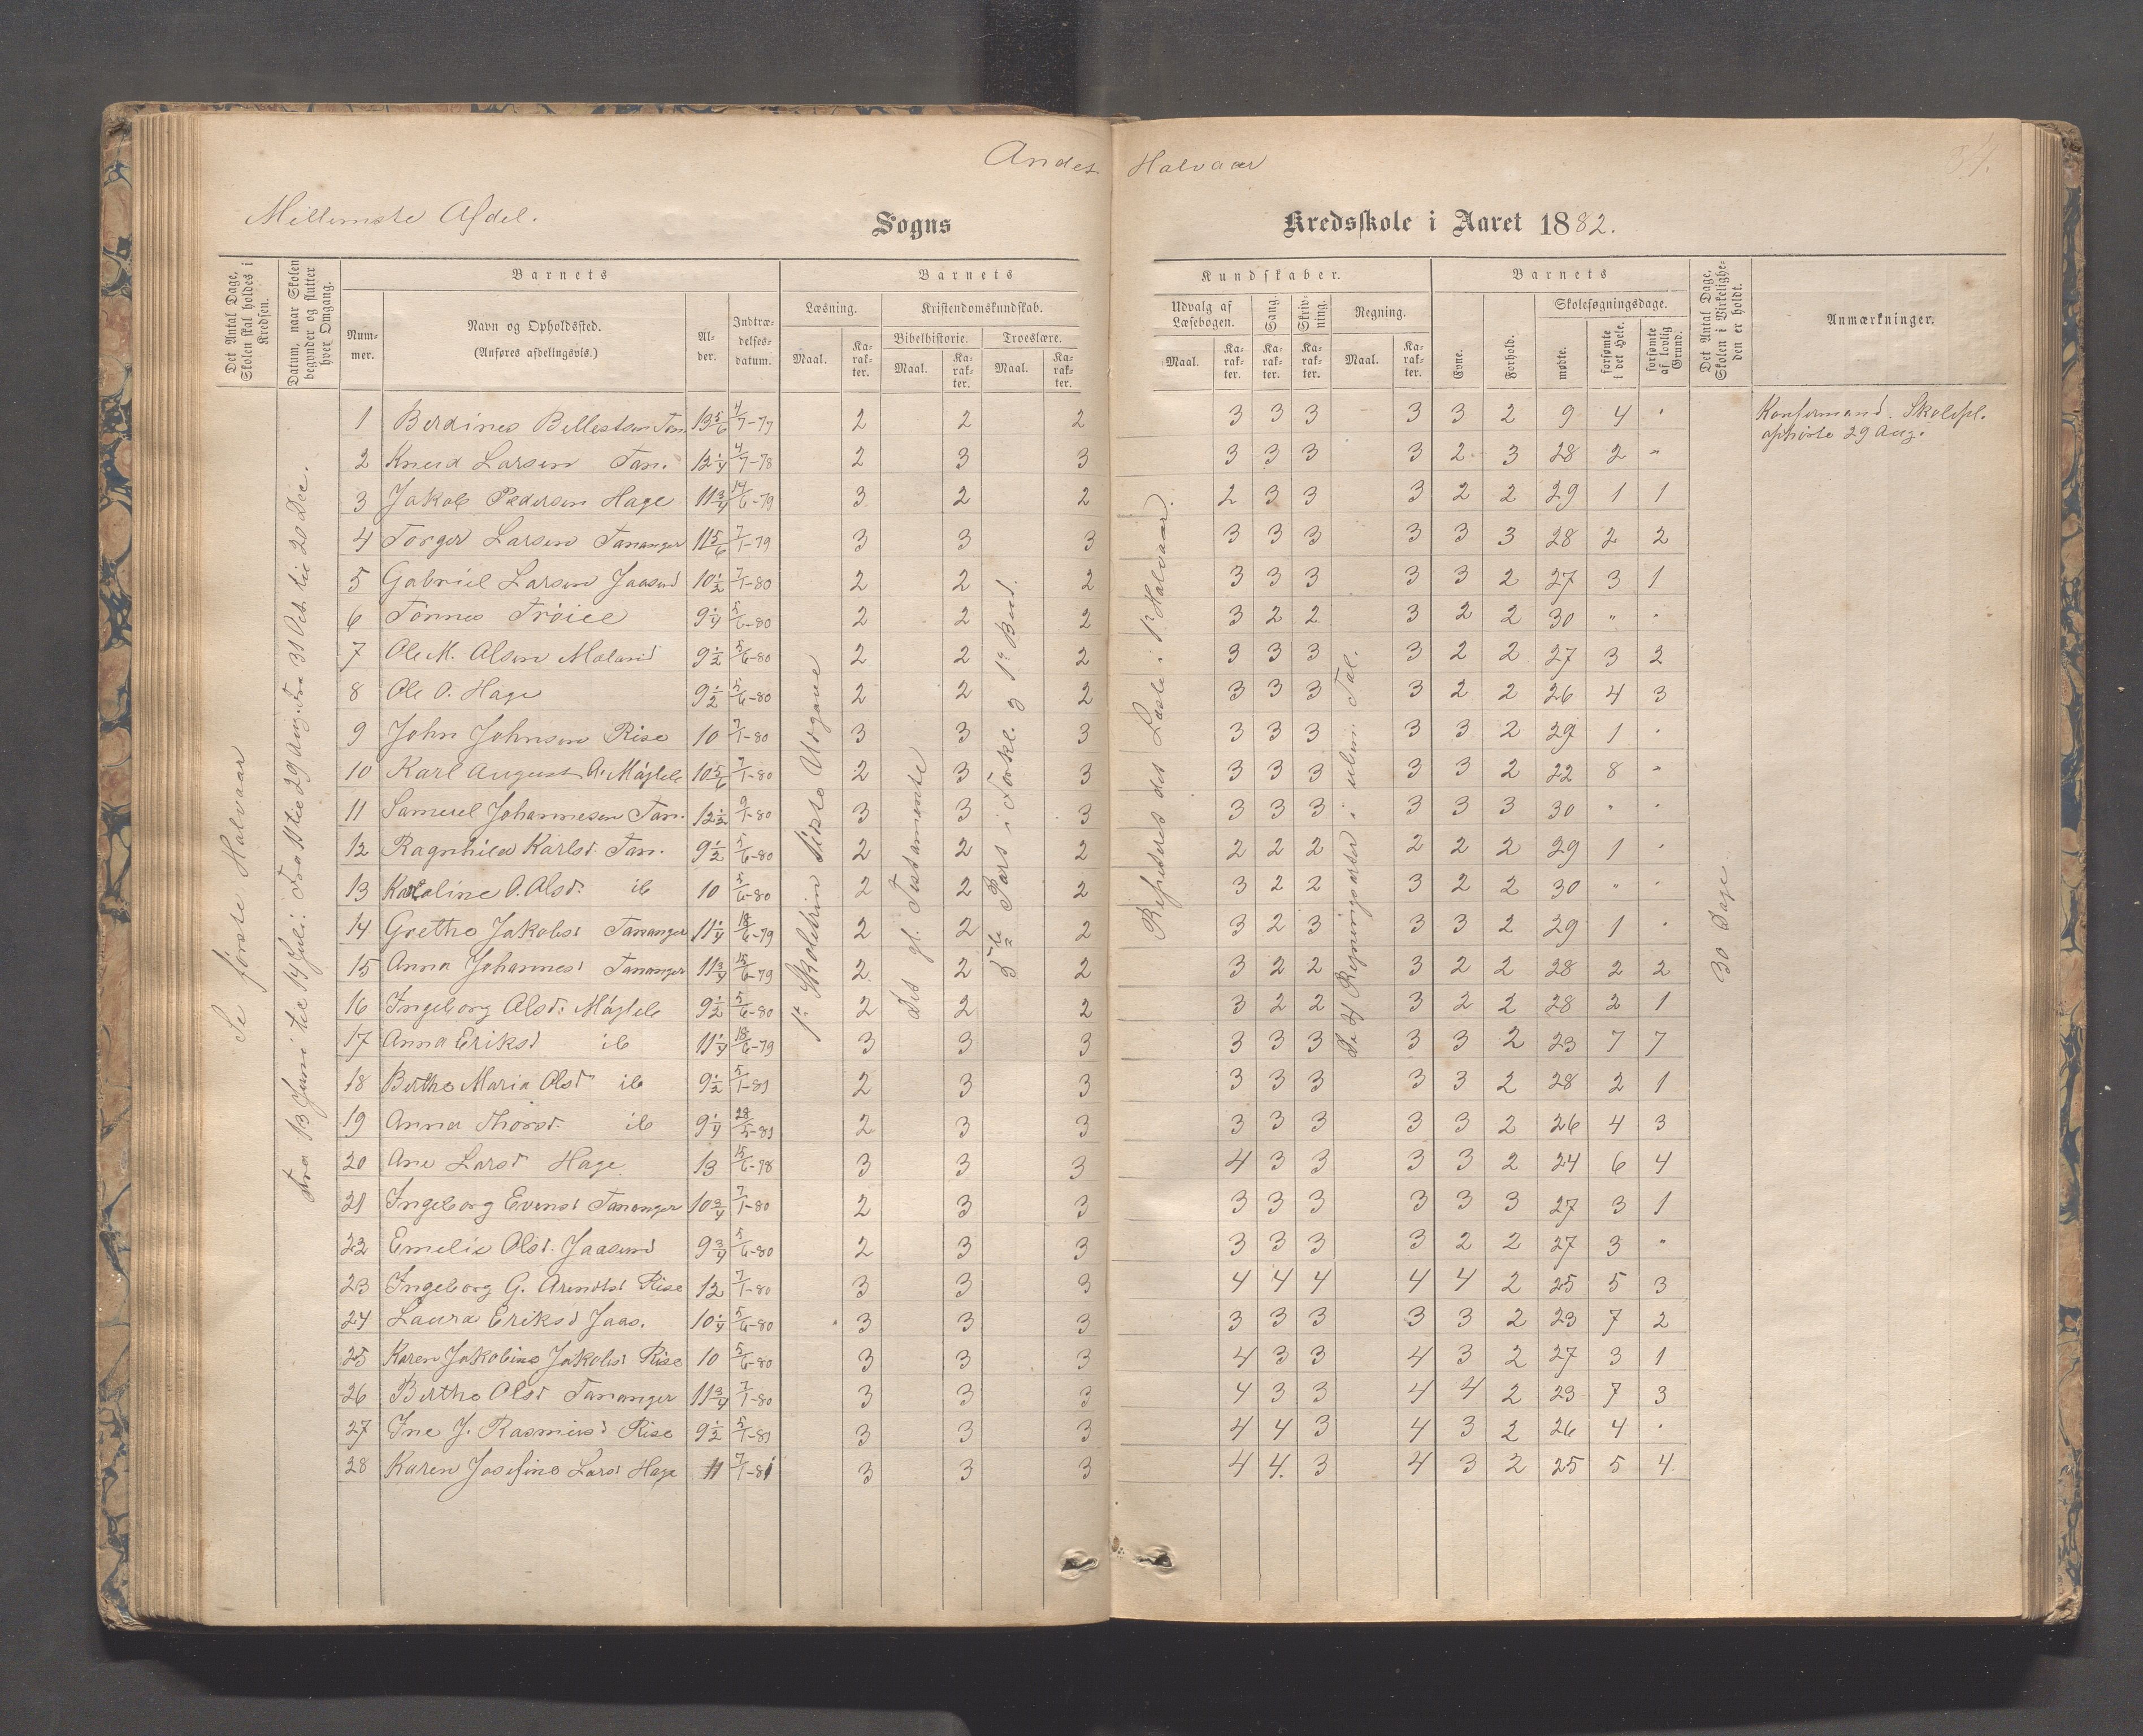 Andet Halvaar
Mellemste Afdel.
Sogns Kredsskole i Aaret 1882.
Det Antal Dage, Skolen skal holdes i Kredsen.
Datum, naar Skolen begynder og slutter hver Omgang.
Barnets
Num-mer.
Navn og Opholdssted.
(Anføres afdelingsvis.)
Al-der.
Indtræ-delses-datum.
Barnets Kundskaber.
Læsning.
Maal. Ka-rak-ter.
Kristendomskundskab.
Bibelhistorie. Troeslære.
Maal. Ka-rak-ter. Maal. Ka-rak-ter.
Udvalg af Læsebogen.
Maal. Ka-rak-ter.
Sang. Ka-rak-ter.
Skriv-ning. Ka-rak-ter.
Regning.
Maal. Ka-rak-ter.
Barnets
Evne. Forhold.
Skolesøgningsdage.
mødte. forsømte i det Hele. forsømte af lovlig Grund.
Det Antal Dage, Skolen i Virkelighe-den er holdt.
Anmærkninger.
Se første Halvaar
Fra 13 Juni til 14 Juli. Fra til 29 Aug. Fra 31 Oct. til 20 Dec.
1ste Skoletrin sidste Udgave
det gl. Testamente
Pars i Forkl. 3 1ste Bud.
Repeteret det Læste i 1ste Halvaar.
De 4 Regningsarter i uben. Tal.
30 Dage
1 Berdines Tan. 13 5/6 4/7-79 2 2 2 3 3 3 3 3 2 9 4 " Konfirmand. Skolepl.
ophørte 29 Aug.
2 Knud Larsen Tan. 12 1/4 4/7-78 2 3 3 3 3 3 3 2 3 28 2 "
3 Jakob Pedersen Hage 11 3/4 14/6-79 3 2 2 2 3 3 3 2 2 29 1 1
4 Torger Larsen Tananger 11 5/6 7/1-79 3 3 3 3 3 3 3 3 3 28 2 2
5 Gabriel Larsen Jaasund 10 1/2 7/1-80 2 2 2 3 3 3 3 3 2 27 3 1
6 Tönnes Tröice 9 1/4 5/6-80 2 2 2 3 2 2 3 2 2 30 " "
7 Ole M. Olsen Meland 9 1/2 5/6-80 2 2 2 3 3 3 3 2 2 27 3 2
8 Ole O. Hage 9 1/2 5/6-80 2 2 2 3 3 3 3 2 2 26 4 3
9 John Johnsen Rise 10 7/1-80 3 3 3 3 3 3 3 3 2 29 1 "
10 Karl August A. Mögleb 10 5/6 7/1-80 2 3 3 3 3 3 3 3 2 22 8 "
11 Samuel Johannesen Tan. 12 1/2 9/1-80 3 3 3 3 3 3 3 3 3 30 " "
12 Ragnhild Karlsd. Tan. 9 1/2 5/6-80 2 2 2 2 2 2 2 2 2 29 1 "
13 Karoline O. Olsd. ib 10 5/6-80 2 2 2 3 2 2 3 2 2 30 " "
14 Grethe Jakobsd Tananger 11 1/4 18/6-79 2 2 2 3 2 3 3 3 2 29 1 "
15 Anna Johannesd Tananger 11 3/4 15/6-79 2 2 2 3 2 2 3 2 2 28 2 2
16 Ingeborg Olsd. Mögleb 9 1/2 5/6-80 2 2 2 3 2 2 3 2 2 28 2 1
17 Anna Eriksd ib 11 1/4 18/6-79 3 3 3 3 3 3 3 3 2 23 7 7
18 Berthe Maria Olsd ib 9 1/2 5/1-81 2 3 3 3 3 3 3 3 2 28 2 1
19 Anna Thorsd. ib 9 1/4 28/5-81 2 3 3 3 3 3 3 3 2 26 4 3
20 Ane Larsd Hage 13 15/6-78 3 3 3 4 3 3 3 3 2 24 6 4
21 Ingeborg Evensd Tananger 10 3/4 7/1-80 2 3 3 3 3 3 3 3 3 27 3 1
22 Emelie Olsd. Jaasund 9 3/4 5/6-80 2 3 3 3 3 3 3 2 2 27 3 "
23 Ingeborg G. Arentsd Rise 12 7/1-80 3 3 3 4 4 4 4 4 2 25 5 3
24 Laura Eriksd Jaas. 10 1/4 5/6-80 3 3 3 3 3 3 3 3 2 23 7 2
25 Karen Jakobine Jakobsd Rise 10 5/6-80 3 3 3 4 3 3 4 3 2 27 3 1
26 Berthe Olsd Tananger 11 3/4 7/1-80 3 3 3 4 3 3 4 4 2 23 7 3
27 Ine J. Rasmusd Rise 9 1/2 5/1-81 3 3 3 4 4 3 4 3 2 26 4 "
28 Karen Josefine Larsd Hage 11 7/1-81 3 3 3 4 4. 3 4 3 2 25 5 4